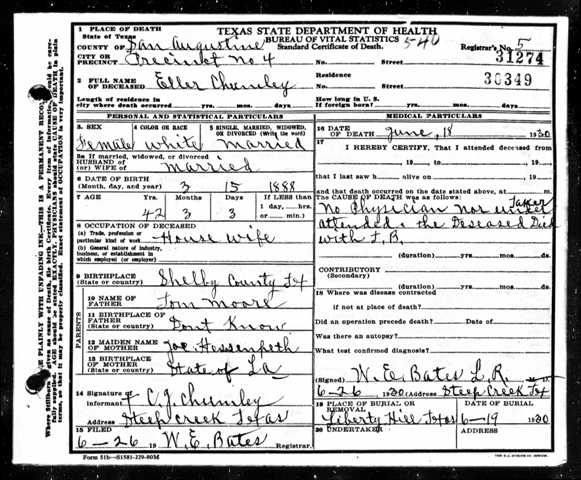 1 PLACE OF DEATH
State of Texas
TEXAS STATE DEPARTMENT OF HEALTH
BUREAU OF VITAL STATISTICS 540
Standard Certificate of Death.
Registrar's No. 5
COUNTY OF San Augustine
31274
CITY OR PRECINCT Precinct no 4 No. Street
2 FULL NAME OF DECEASED Eller Chumley
Residence No. Street
30349
Length of residence in city where death occurred yrs. mos. days
How long in U. S. If foreign born? yrs. mos. days
PERSONAL AND STATISTICAL PARTICULARS
3. SEX Female
4 COLOR OR RACE white
5 SINGLE, MARRIED, WIDOWED, OR DIVORCED (Write the word) married
5a If married, widowed, or divorced
HUSBAND OF (or) WIFE OF married
6 DATE OF BIRTH (Month, day, and year) 3 15 1888
7 AGE Years 42 Months 3 Days 3 If LESS than 1 day, hrs. or min.
8 OCCUPATION OF DECEASED
(a) Trade, profession or particular kind of work House wife
(b) General nature of industry, business, or establishment in which employed (or employer)
9 BIRTHPLACE (State or country) Shelby County Tx
PARENTS
10 NAME OF FATHER Tom Moore
11 BIRTHPLACE OF FATHER (State or country) Dont Know
12 MAIDEN NAME OF MOTHER Joe
13 BIRTHPLACE OF MOTHER (State or country) State of La
14 Signature of informant C. J. Chumley
Address Steep creek Texas
15 FILED 6-26 19 W. E. Bates Registrar.
MEDICAL PARTICULARS
16 DATE OF DEATH June, 18 1930
17 I HEREBY CERTIFY, That I attended deceased from
19 to 19
that I last saw h alive on 19
and that death occurred on the date stated above, at m.
The CAUSE OF DEATH was as follows:
No Physician nor under Taker
attended. the Deseased Died
with T. B.
(duration) yrs. mos. ds.
CONTRIBUTORY (Secondary)
(duration) yrs. mos. days
18 Where was disease contracted
if not at place of death?
Did an operation precede death? Date of
Was there an autopsy?
What test confirmed diagnosis?
(Signed) W. E. Bates L. R. M. D.
6-26 1930 Address Steep Creek Tx
19 PLACE OF BURIAL OR REMOVAL Liberty Hill Texas
DATE OF BURIAL 6-19 1930
20 UNDERTAKER
ADDRESS
Form 51b—S1581-229-80M